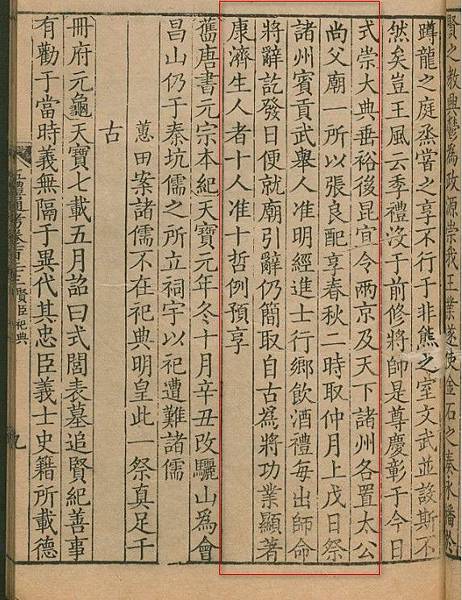 賢之教興鬱為政我王業遂使金石之奏永播
蹲龍之庭烝嘗之享不行于非熊之室文武並設斯不
然矣豈王風云季禮沒于前修將帥是尊慶彰于今日
式崇大典垂裕後昆宜令兩京及天下諸州各置太公
尚父廟一所以張良配享春秋二時取仲月上戊日祭
諸州賓貢武舉人准明經進士行鄉飲酒禮每出師命
將辭訖發日便就廟引辭仍簡取自古為將功業顯著
康濟生人者十人准十哲例預享
舊唐書元宗本紀天寶元年冬十月辛丑改驪山為會
昌山仍于秦坑儒之所立祠宇以祀遭難諸儒
蕙田案諸儒不在祀典明皇此一祭真足千
古
冊府元龜天寶七載五月詔曰式閭表墓追賢紀善事
有勸于當時義無隔于異代其忠臣義士史籍所載德
五禮通考卷 賢臣祀典 九